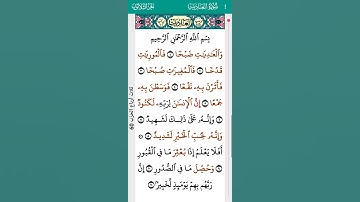 سُورَةُ العَادِيَاتِ
الجُزْءُ الثَّلَاثُونَ
العَادِيَات
بِسْمِ ٱللَّهِ ٱلرَّحْمَٰنِ ٱلرَّحِيمِ
وَٱلْعَٰدِيَٰتِ ضَبْحًا ۝١ فَٱلْمُورِيَٰتِ
قَدْحًا ۝٢ فَٱلْمُغِيرَٰتِ صُبْحًا ۝٣
فَأَثَرْنَ بِهِۦ نَقْعًا ۝٤ فَوَسَطْنَ بِهِۦ
جَمْعًا ۝٥ إِنَّ ٱلْإِنسَٰنَ لِرَبِّهِۦ لَكَنُودٌ ۝٦
وَإِنَّهُۥ عَلَىٰ ذَٰلِكَ لَشَهِيدٌ ۝٧
وَإِنَّهُۥ لِحُبِّ ٱلْخَيْرِ لَشَدِيدٌ ۝٨
أَفَلَا يَعْلَمُ إِذَا بُعْثِرَ مَا فِى ٱلْقُبُورِ
۝٩ وَحُصِّلَ مَا فِى ٱلصُّدُورِ ۝١٠ إِنَّ
رَبَّهُم بِهِمْ يَوْمَئِذٍ لَّخَبِيرٌۢ ۝١١
ثلاث أرباع الحزب 60